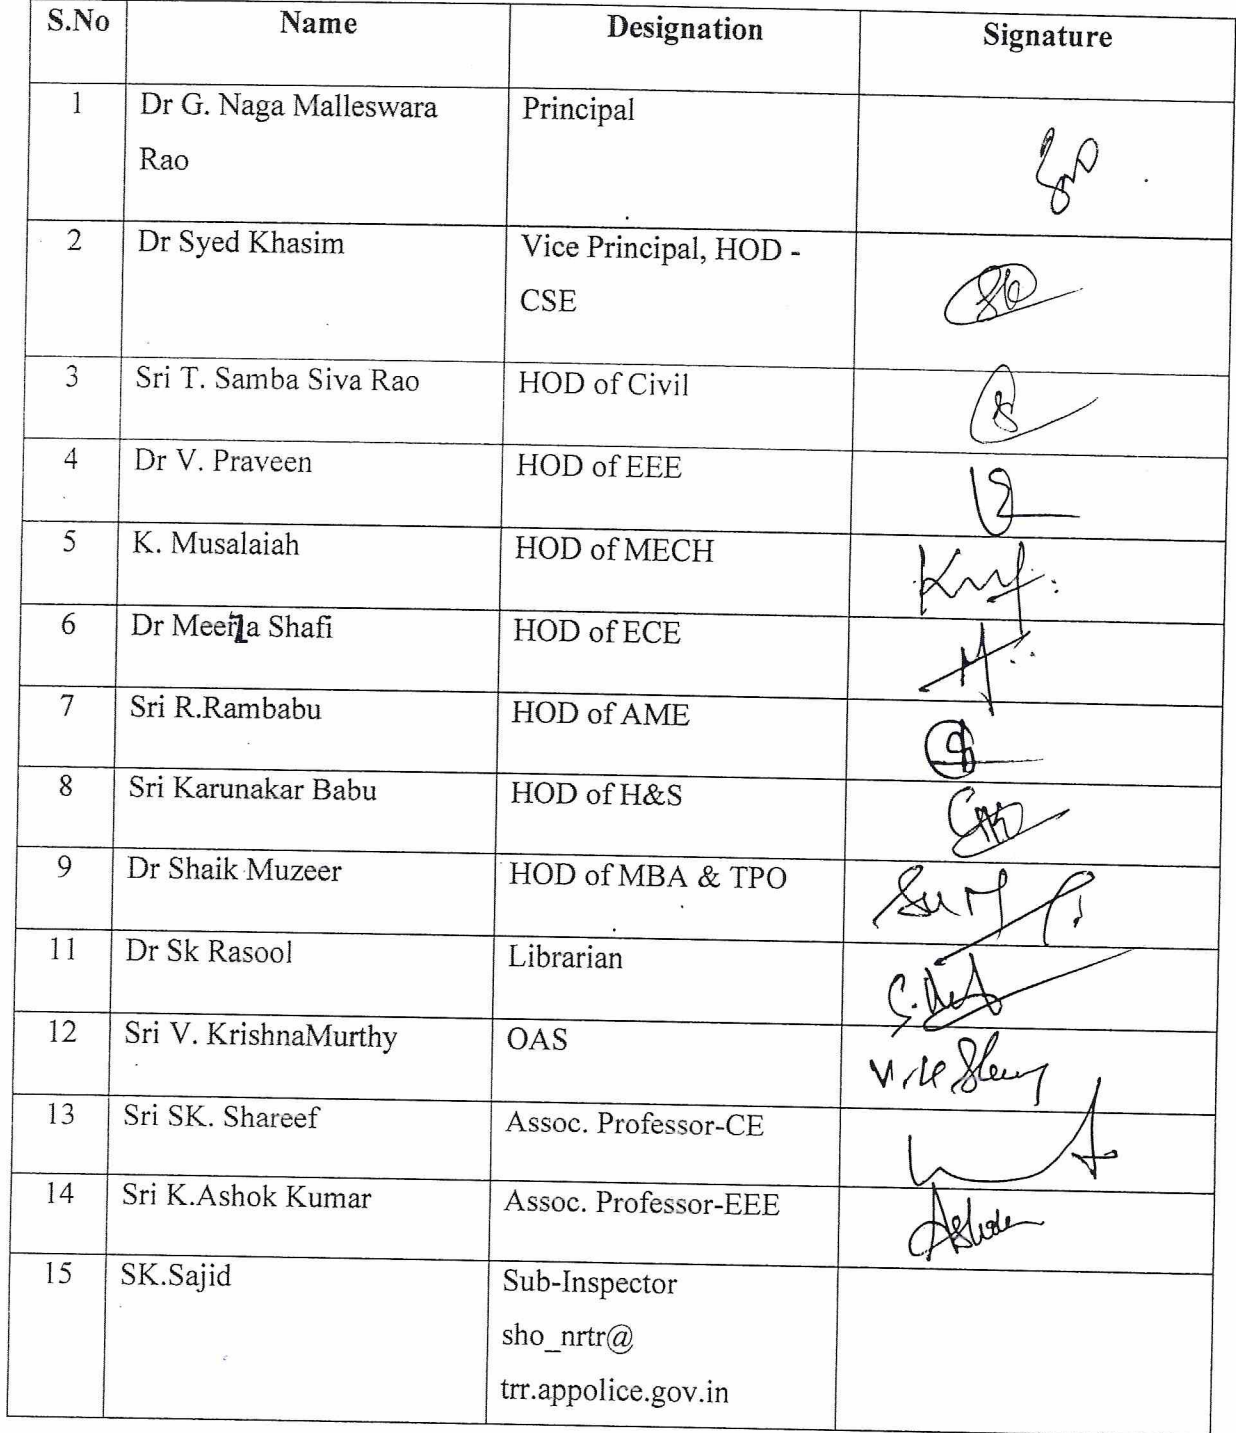 S.No Name Designation Signature
1 Dr G. Naga Malleswara Principal
Rao
2 Dr Syed Khasim Vice Principal, HOD -
CSE
3 Sri T. Samba Siva Rao HOD of Civil
4 Dr V. Praveen HOD of EEE
5 K. Musalaiah HOD of MECH
6 Dr Shafi HOD of ECE
7 Sri R.Rambabu HOD of AME
8 Sri Karunakar Babu HOD of H&S
9 Dr Shaik Muzeer HOD of MBA & TPO
11 Dr Sk Rasool Librarian
12 Sri V. KrishnaMurthy OAS
13 Sri SK. Shareef Assoc. Professor-CE
14 Sri K.Ashok Kumar Assoc. Professor-EEE
15 SK.Sajid Sub-Inspector
sho_nrtr@
trr.appolice.gov.in